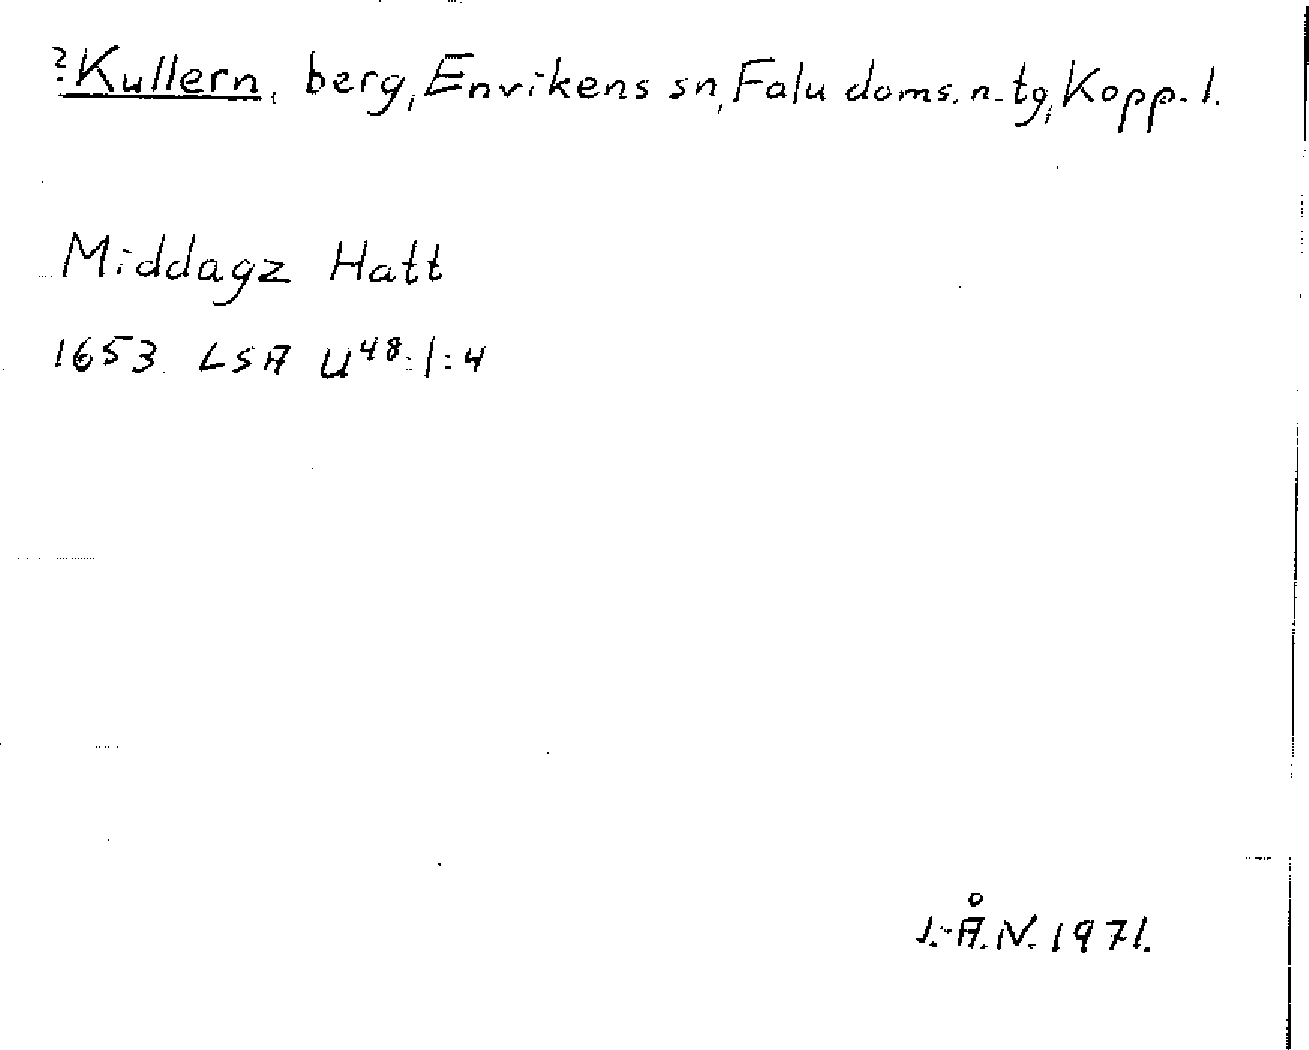 ?Kullern, berg, Envikens sn, Falu doms. n. tg, Kopp. l.
Middagz Hatt
1653 LSA U48:1:4
J.-Å.N. 1971.